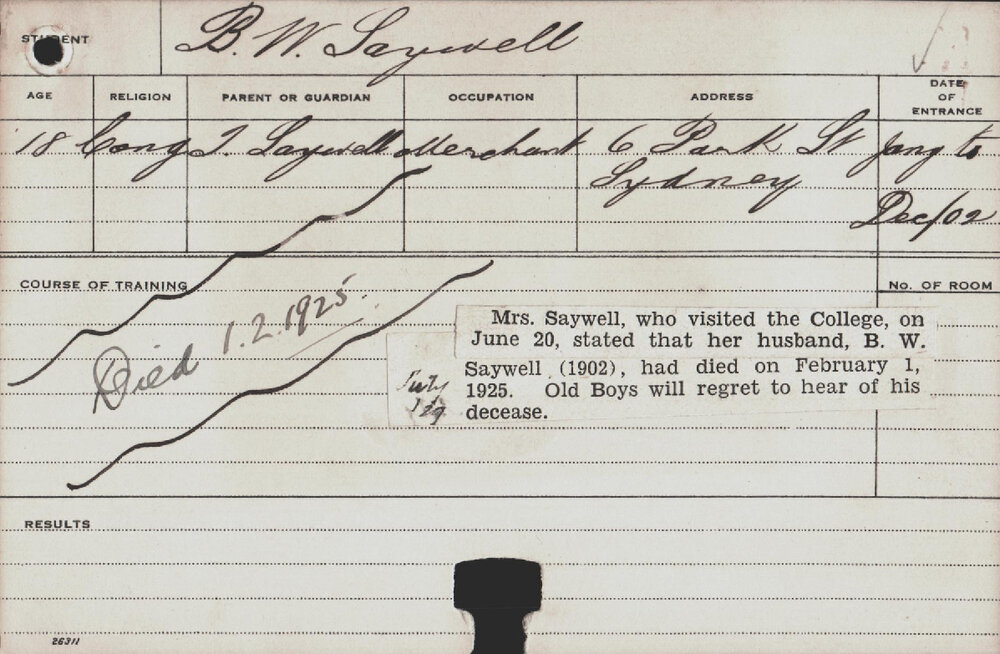 STUDENT B. W. Saywell
AGE RELIGION PARENT OR GUARDIAN OCCUPATION ADDRESS DATE OF ENTRANCE
18 Cong T. Saywell Merchant 6 Park St
Sydney
to
Dec/02
COURSE OF TRAINING
No. OF ROOM
Died 1.2.1925.
Mrs. Saywell, who visited the College, on
June 20, stated that her husband, B. W.
Saywell (1902), had died on February 1,
1925. Old Boys will regret to hear of his
decease.
July
RESULTS
26311